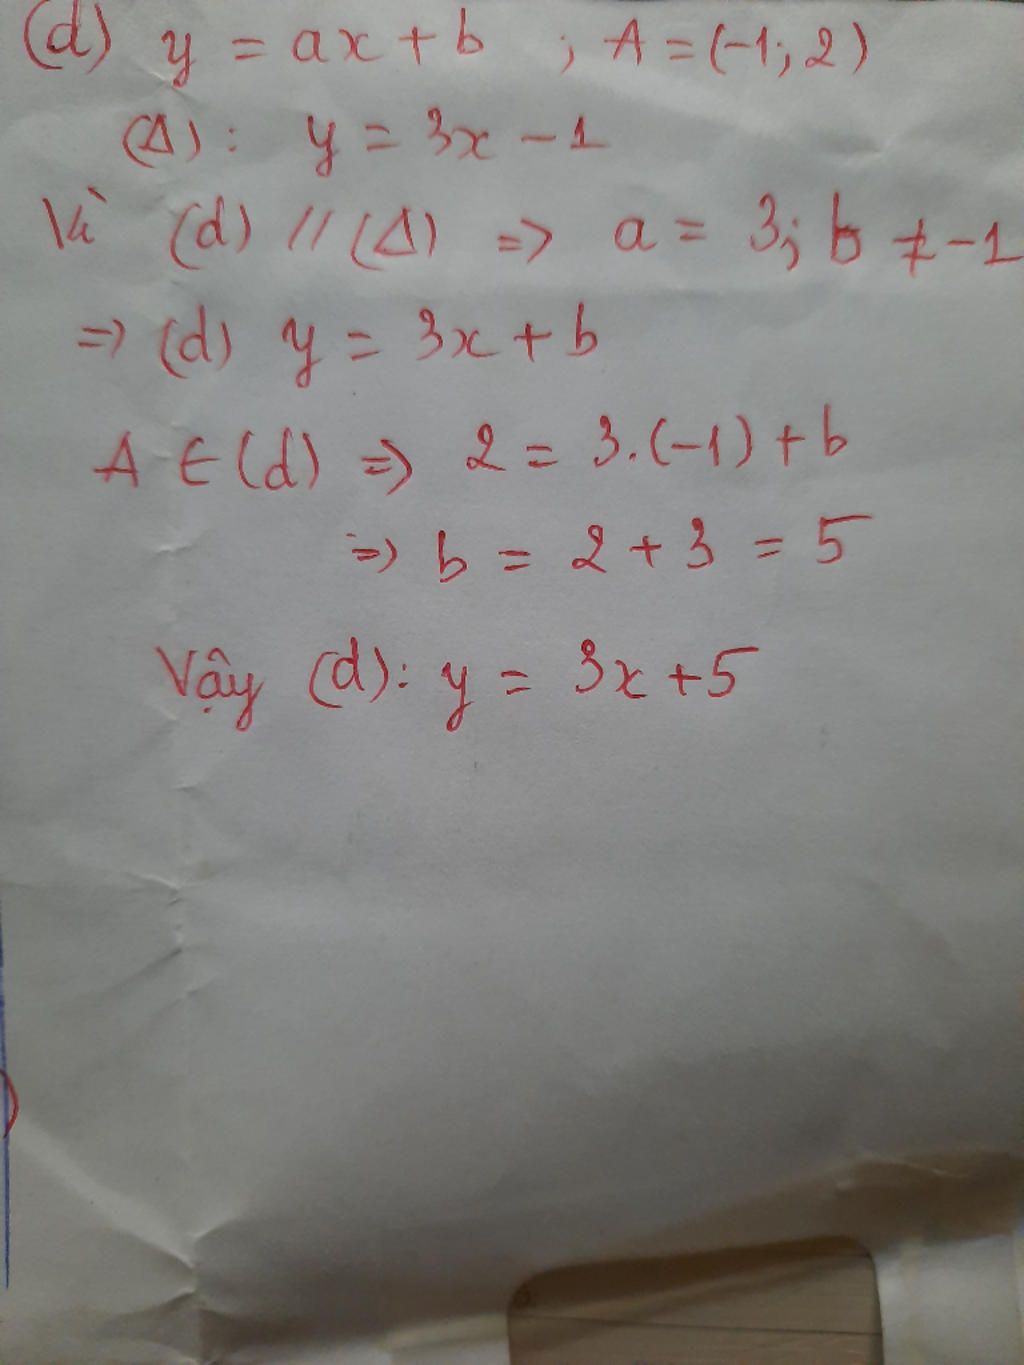 (d) y = ax + b ; A = (-1; 2)
(Δ): y = 3x - 1
Vì (d) // (Δ) => a = 3; b ≠ -1
=> (d) y = 3x + b
A ∈ (d) => 2 = 3.(-1) + b
=> b = 2 + 3 = 5
Vậy (d): y = 3x + 5